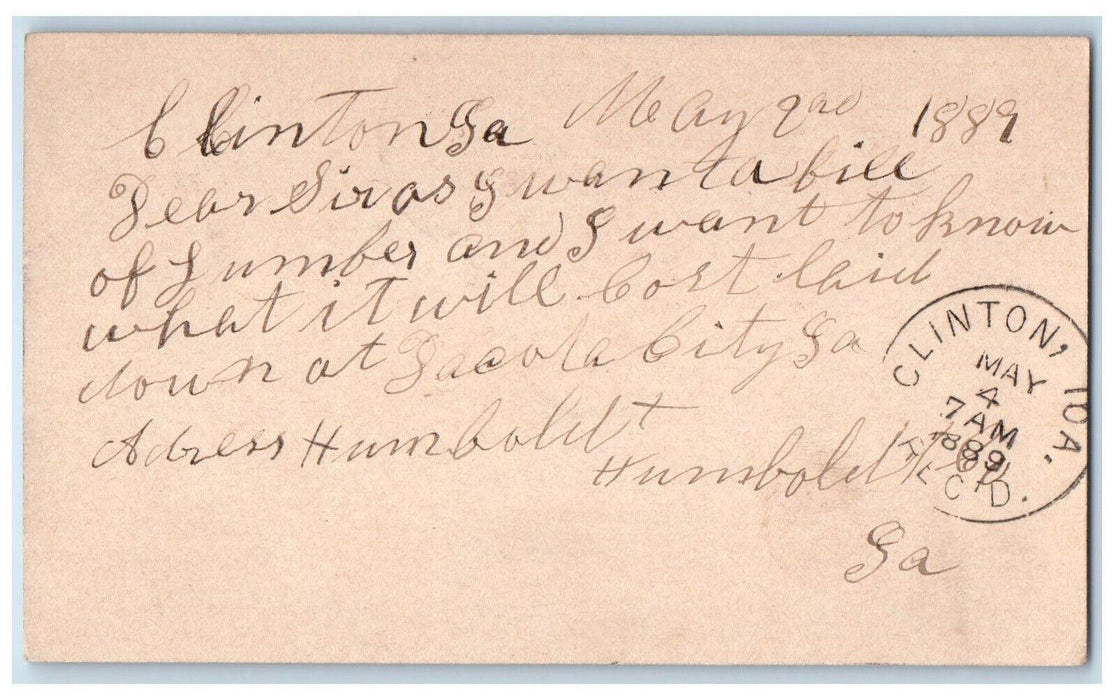 Clinton Ia May 2nd 1889
Dear Sir as I want a bill
of Lumber and I want to know
what it will Cost laid
down at Dacota City Ia
Adress Humboldt
Humboldt Co
Ia
CLINTON, IOA.
MAY
4
7AM
1889
REC'D.